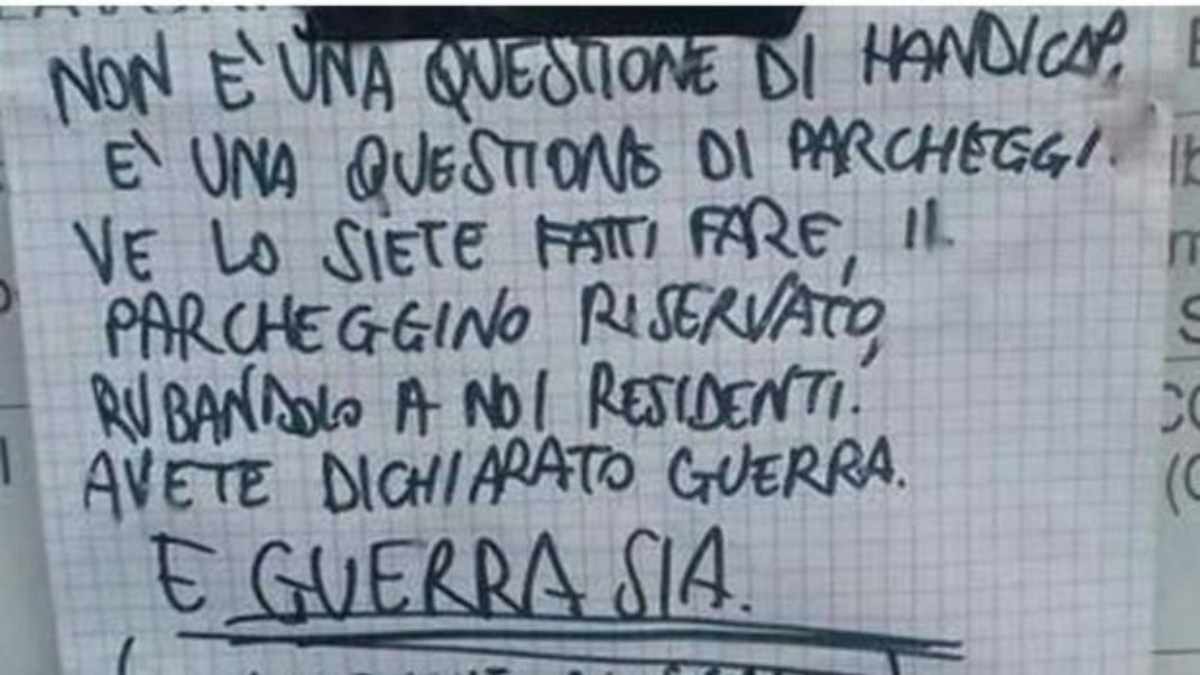 NON E' UNA QUESTIONE DI HANDICAP.
E' UNA QUESTIONE DI PARCHEGGI.
VE LO SIETE FATTI FARE, IL
PARCHEGGINO RISERVATO,
RUBANDOLO A NOI RESIDENTI.
AVETE DICHIARATO GUERRA.
E GUERRA SIA.